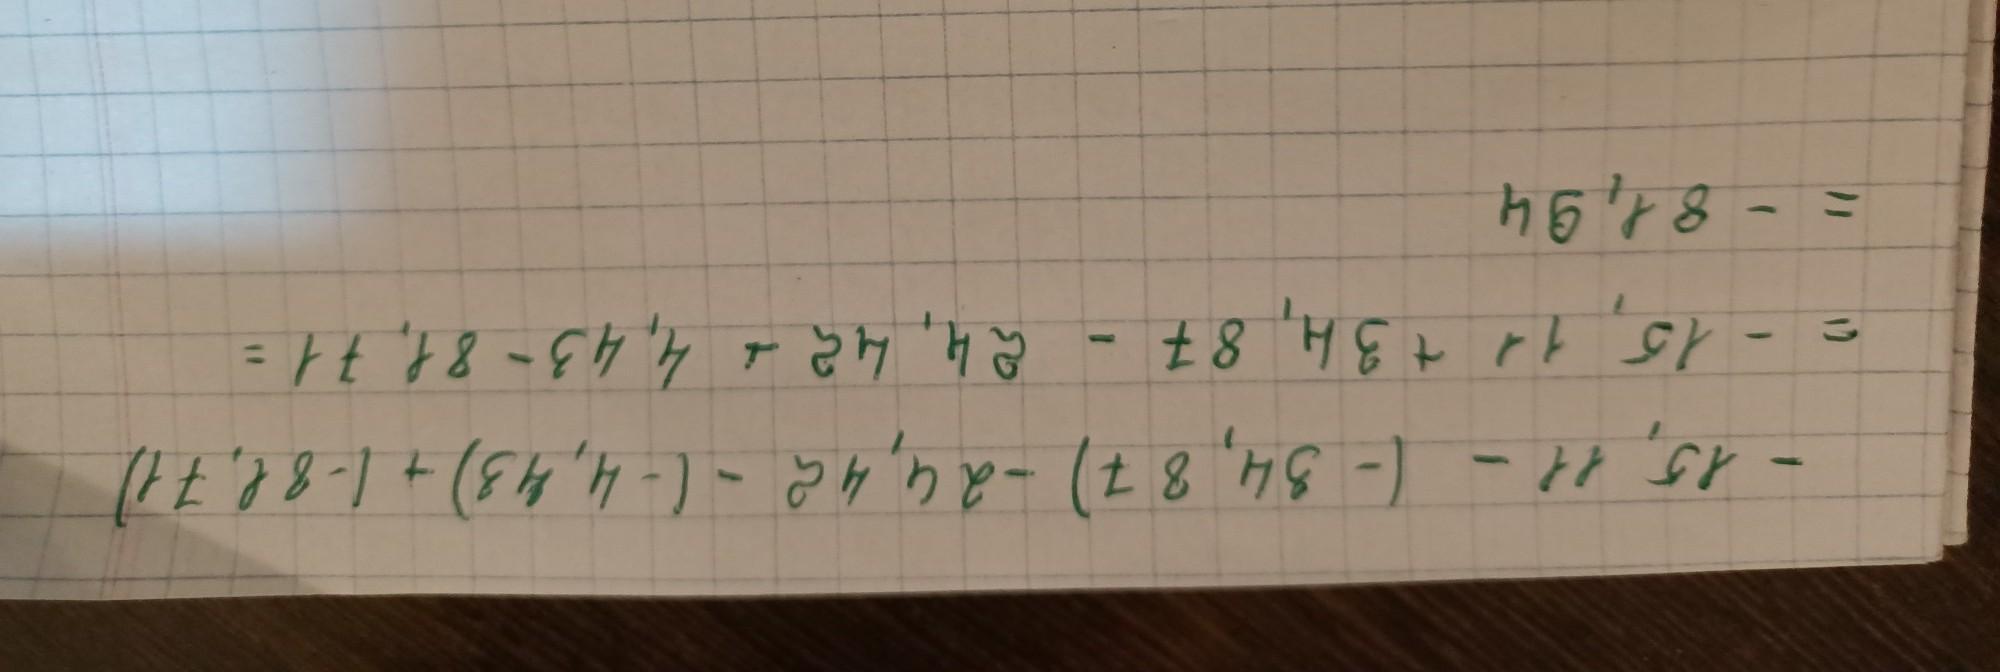 - 15,11 - (-34,87) - 24,42 - (-4,43) + (-81,71)
= - 15,11 + 34,87 - 24,42 + 4,43 - 81,71 =
= - 81,94